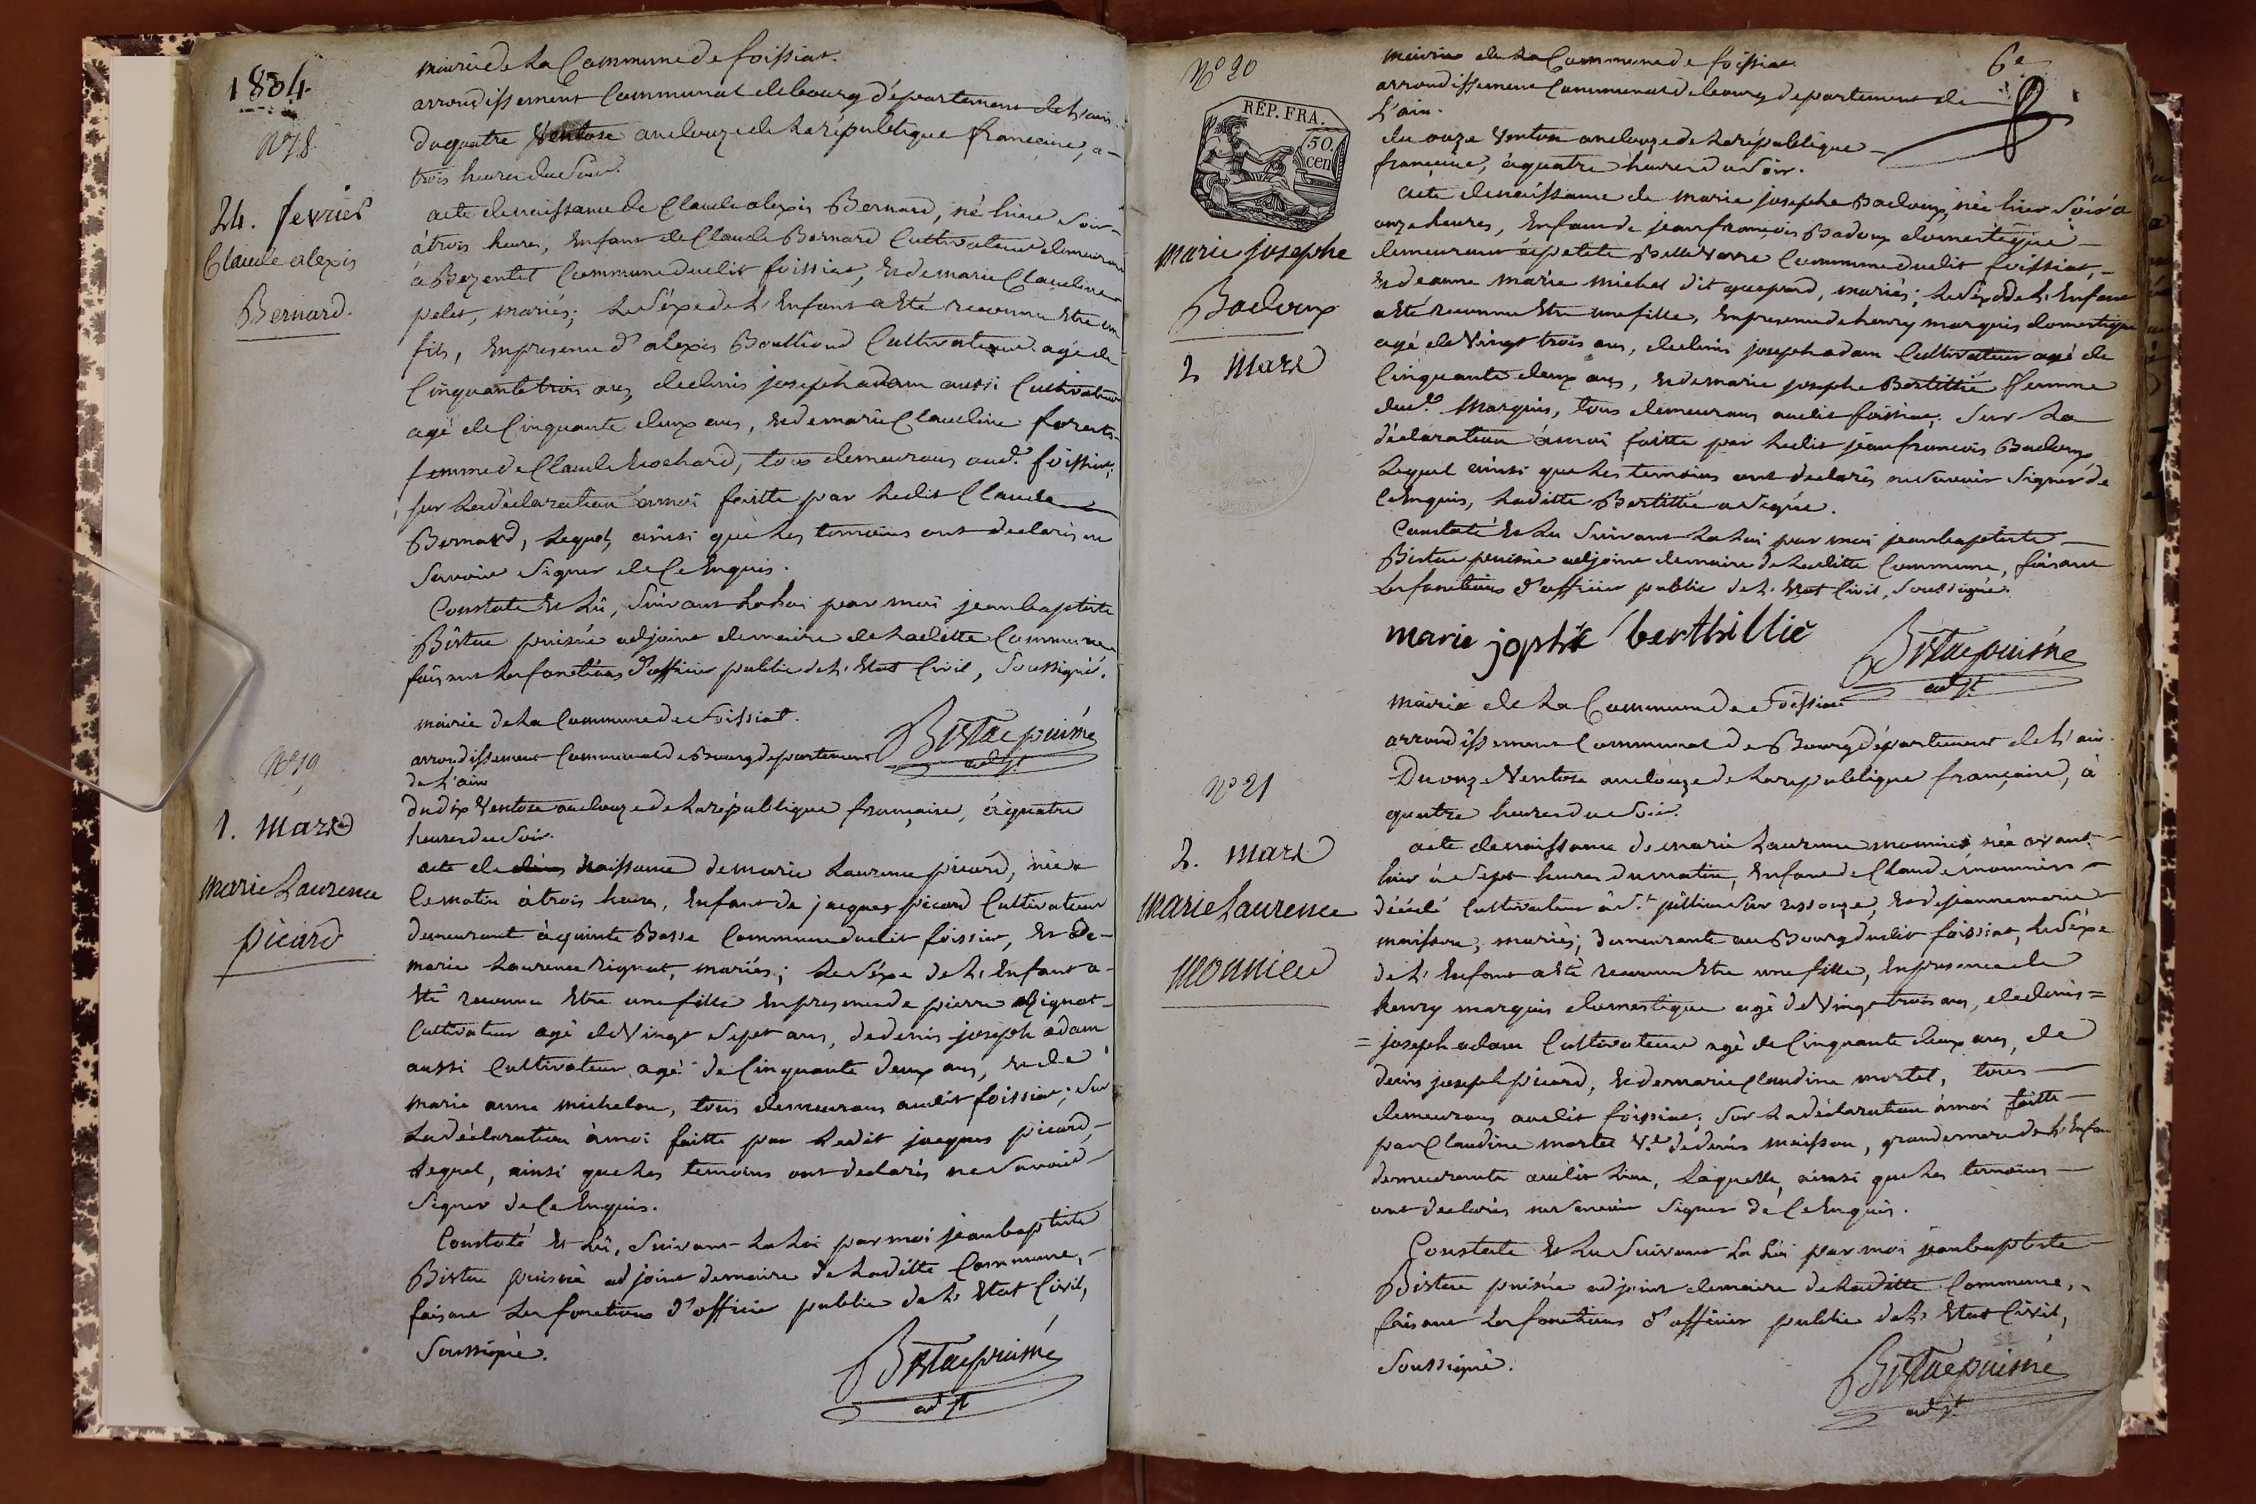 1804
N° 18.
24. fevrier
Claude alexis
Bernard.
mairie de La Commune de foissiat.
arrondissement Communal de bourg département de L'ain.
du quatre Ventose an douze de La république françaine, a
trois heures du Soir.
acte de naissance de Claude alexis Bernard, né hiere Soir
à trois heures, Enfant de Claude Bernard Cultivateur demeurant
à Bezentet Commune dudit foissiat, Et de marie Claudine
pelet, mariés; Le Séxe de L'Enfant a Eté reconnu Etre un
fils, En presence d'alexis Boulliond Cultivateur agé de
Cinquante trois ans, de denis joseph adam aussi Cultivateur
agé de Cinquante deux ans, Et de marie Claudine
femme de Claude Rochard, tous demeurans aud.t foissiat;
sur La déclaration à moi faitte par Ledit Claude
Bernard, Lequel, ainsi que Les temoins ont declarés ne
Savoir Signer de Ce Enquis.
Constaté Et Lû, Suivant La Loi par moi jean baptiste
Bistue puisné adjoint de maire de Laditte Commune
faisant Les fonctions d'officier public de L'Etat Civil, Soussigné.
Bistue puisné
adjt
N° 19
1. Mars
marie Laurence
picard
mairie de La Commune de Foissiat.
arrondissement Communal de Bourg département
de L'ain
du dix Ventose an douze de La république française, à quatre
heures du Soir.
acte de naissance de marie Laurence picard, née
Ce matin à trois heures, Enfant de jacques picard Cultivateur
demeurant à quinte Basse Commune dudit foissiat, Et de
marie Laurence Rignat, mariés; Le Séxe de L'Enfant a
Eté reconnu Etre une fille En presence de pierre Rignat
Cultivateur agé de Vingt Sept ans, de denis joseph adam
aussi Cultivateur agé de Cinquante deux ans, Et de
marie anne michelon, tous demeurans audit foissiat; Sur
La déclaration à moi faitte par Ledit jacques picard,
Lequel, ainsi que Les temoins ont declarés ne Savoir
Signer de Ce Enquis.
Constaté Et Lû, Suivant La Loi par moi jean baptiste
Bistue puisné adjoint de maire de Laditte Commune,
faisant Les fonctions d'officier public de L'Etat Civil,
Soussigné.
Bistue puisné
adjt
N° 20
RÉP. FRA.
50.
cen
marie josephe
Badoux
2 Mars
6e
mairie de La Commune de foissiat
arrondissement Communal de bourg departement de
L'ain.
du onze Ventose an douze de La république
française, à quatre heures du Soir.
acte de naissance de marie josephe Badoux, née hier Soir à
onze heures, Enfant de jean françois Badoux domestique
demeurant à petite Commune dudit foissiat,
Et de anne marie michel dit gaspard, mariés; Le Séxe de L'Enfant
a Eté reconnu Etre une fille, En presence de henry marquis domestique
agé de Vingt trois ans, de denis joseph adam Cultivateur agé de
Cinquante deux ans, Et de marie josephe Bertillié femme
dud.t Marquis, tous demeurans audit foissiat; Sur La
déclaration à moi faitte par Ledit jean francois Badoux
Lequel ainsi que Les temoins ont declarés ne Savoir Signer de
Ce Enquis, Laditte Bertillié a Signé.
Constaté Et Lu Suivant La Loi par moi jean baptiste
Bistue puisné adjoint de maire de Laditte Commune, faisant
Les fonctions d'officier public de L'Etat Civil, Soussigné.
marie josphte berthillié
Bistue puisné
adjt
N° 21
2. mars
Marie Laurence
Monnier
mairie de La Commune de Foissiat
arrondissement Communal de Bourg département de L'ain.
Du onze Ventose an douze de La republique française, à
quatre heures du Soir.
acte de naissance de marie Laurence monnier née avant
hier à Sept heures du matin, Enfant de Claude monnier
décédé Cultivateur à S.t jullien Sur ressouze, Et de jeanne marie
maisson, mariés; demeurante au Bourg dudit foissiat, Le Séxe
de L'Enfant a Eté reconnu Etre une fille, En presence de
henry marquis domestique agé de Vingt trois ans, de denis =
= joseph adam Cultivateur agé de Cinquante deux ans, de
denis joseph picard, Et de marie Claudine mortel, tous
demeurans audit foissiat; Sur La déclaration à moi faitte
par Claudine mortel V.e de denis maisson, grande mere de L'Enfan
demeurante audit Lieu, Laquelle, ainsi que Les temoins
ont declarés ne Savoir Signer de Ce Enquis.
Constaté Et Lu Suivant La Loi par moi jean baptiste
Bistue puisné adjoint de maire de Laditte Commune,
faisant Les fonctions d'officier public de L'Etat Civil,
Soussigné.
Bistue puisné
adjt